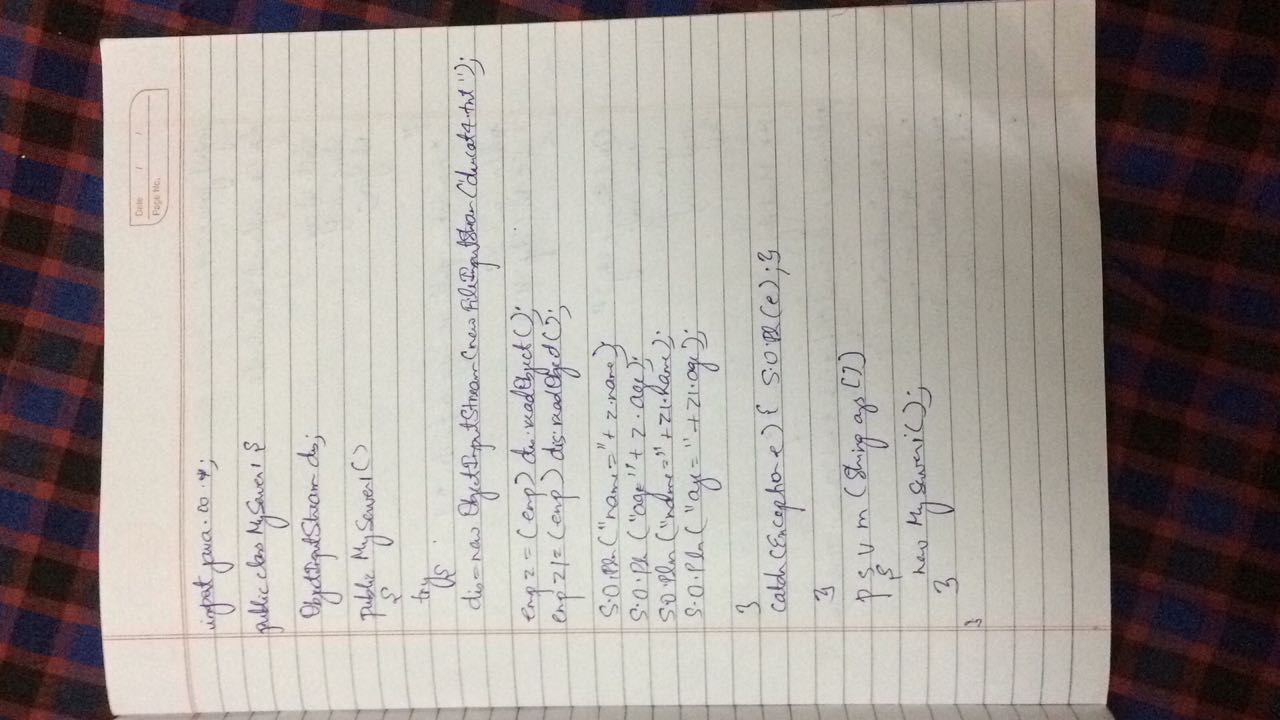 Date / /
Page No.
import java.io.*;
public class MyServer1 {
ObjectInputStream dis;
public MyServer1()
{
try
{
dis=new ObjectInputStream(new FileInputStream("ducat4.txt");
emp z = (emp) dis.readObject();
emp z1 = (emp) dis.readObject();
S.O.Pln("name="+ z.name);
S.O.Pln ("age"+ z.age);
S.O.Pln ("name="+z1.name);
S.O.Pln ("age="+z1.age);
}
catch(Exception e) { S.O.Pln(e);}
}
p s v m (String args [])
{
new MyServer1();
}
}